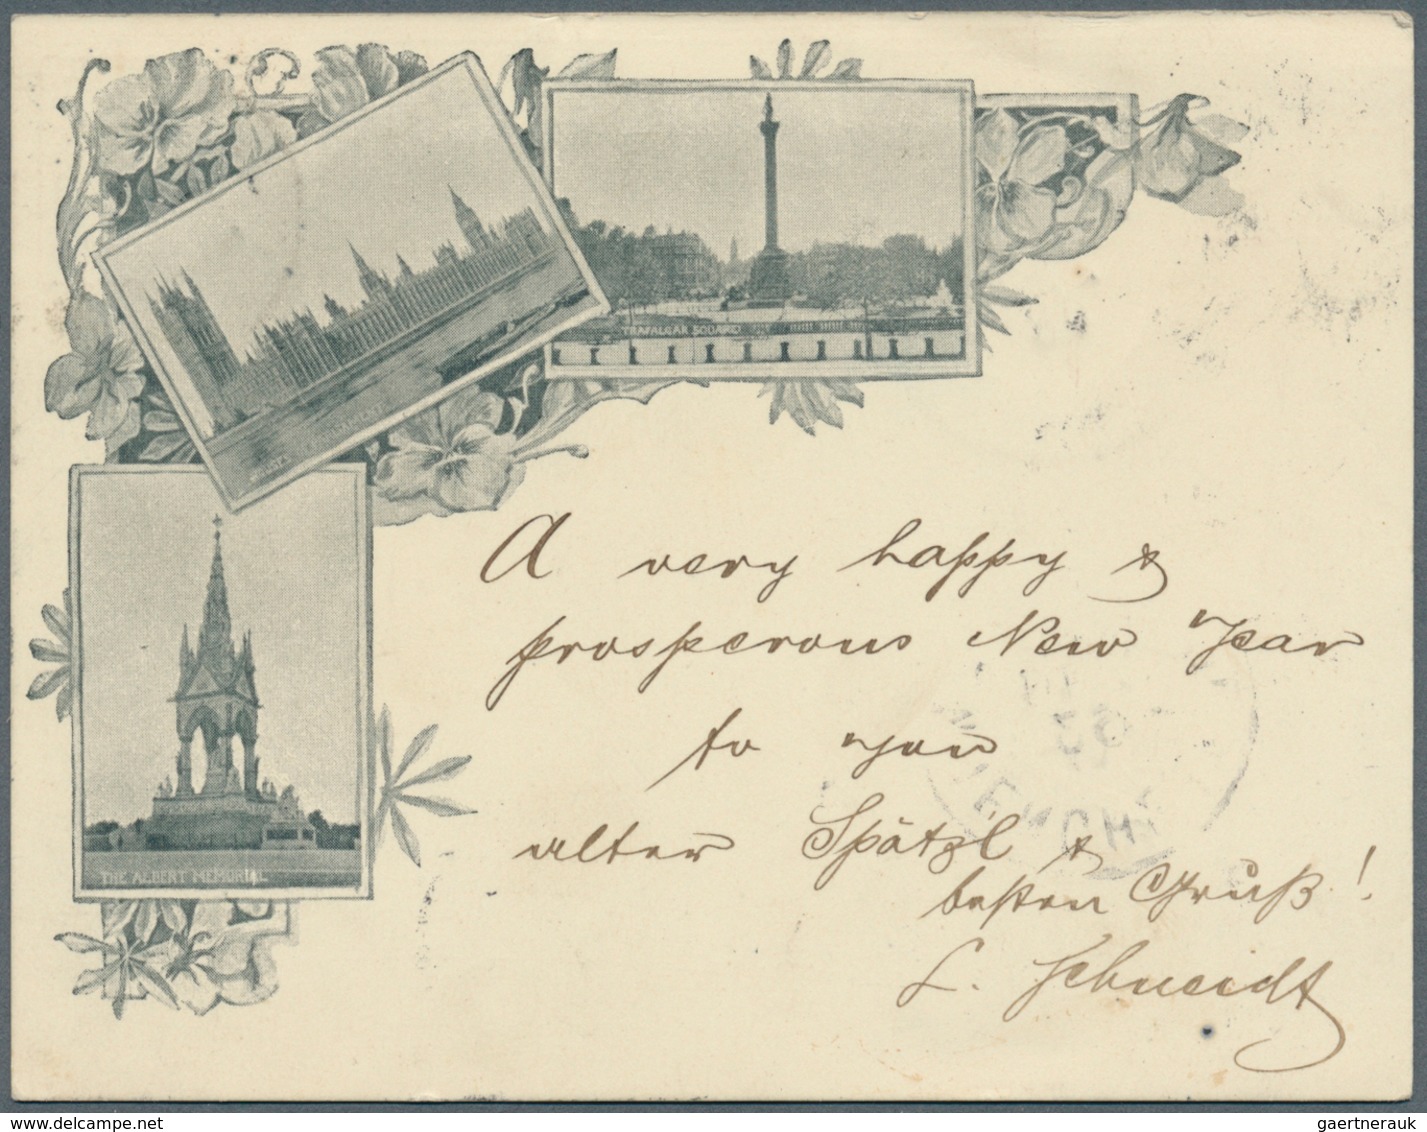 TRAFALGAR SQUARE
THE ALBERT MEMORIAL
A very happy &
prosperous New Year
to you
alter Spätzl &
besten Gruß!
L. Schmeidt
delcampe.net
gaertnerauk